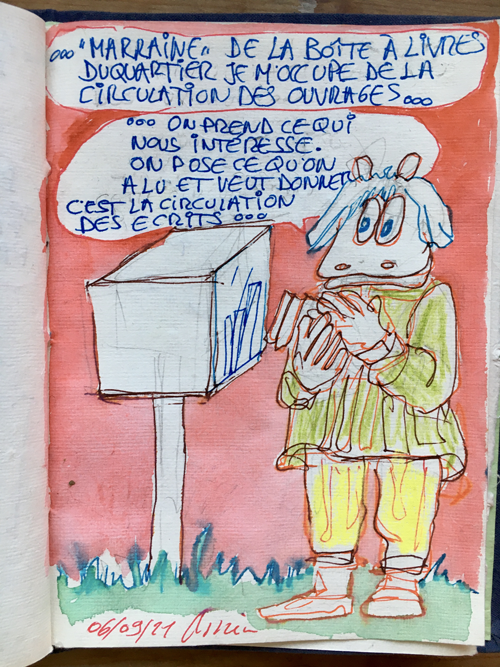 ... "MARRAINE" DE LA BOITE À LIVRES
DU QUARTIER JE M'OCCUPE DE LA
CIRCULATION DES OUVRAGES ...
... ON PREND CE QUI
NOUS INTERESSE.
ON POSE CE QU'ON
A LU ET VEUT DONNER
C'EST LA CIRCULATION
DES ECRITS ...
06/09/21